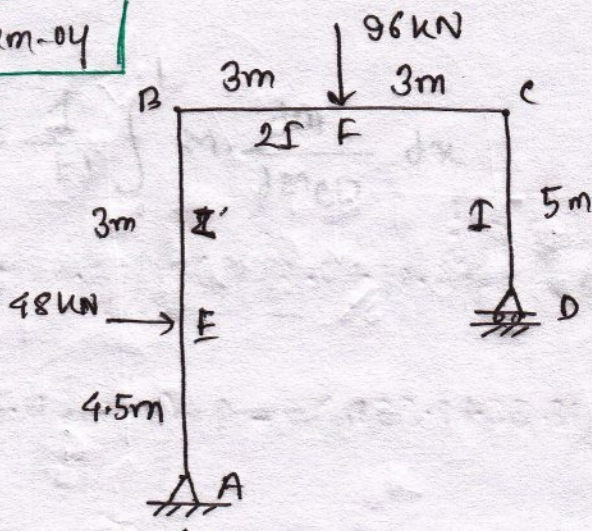 m-04
96 KN
3m 3m
B C
2I F
3m I 5m
I
48 KN E
D
4.5m
A